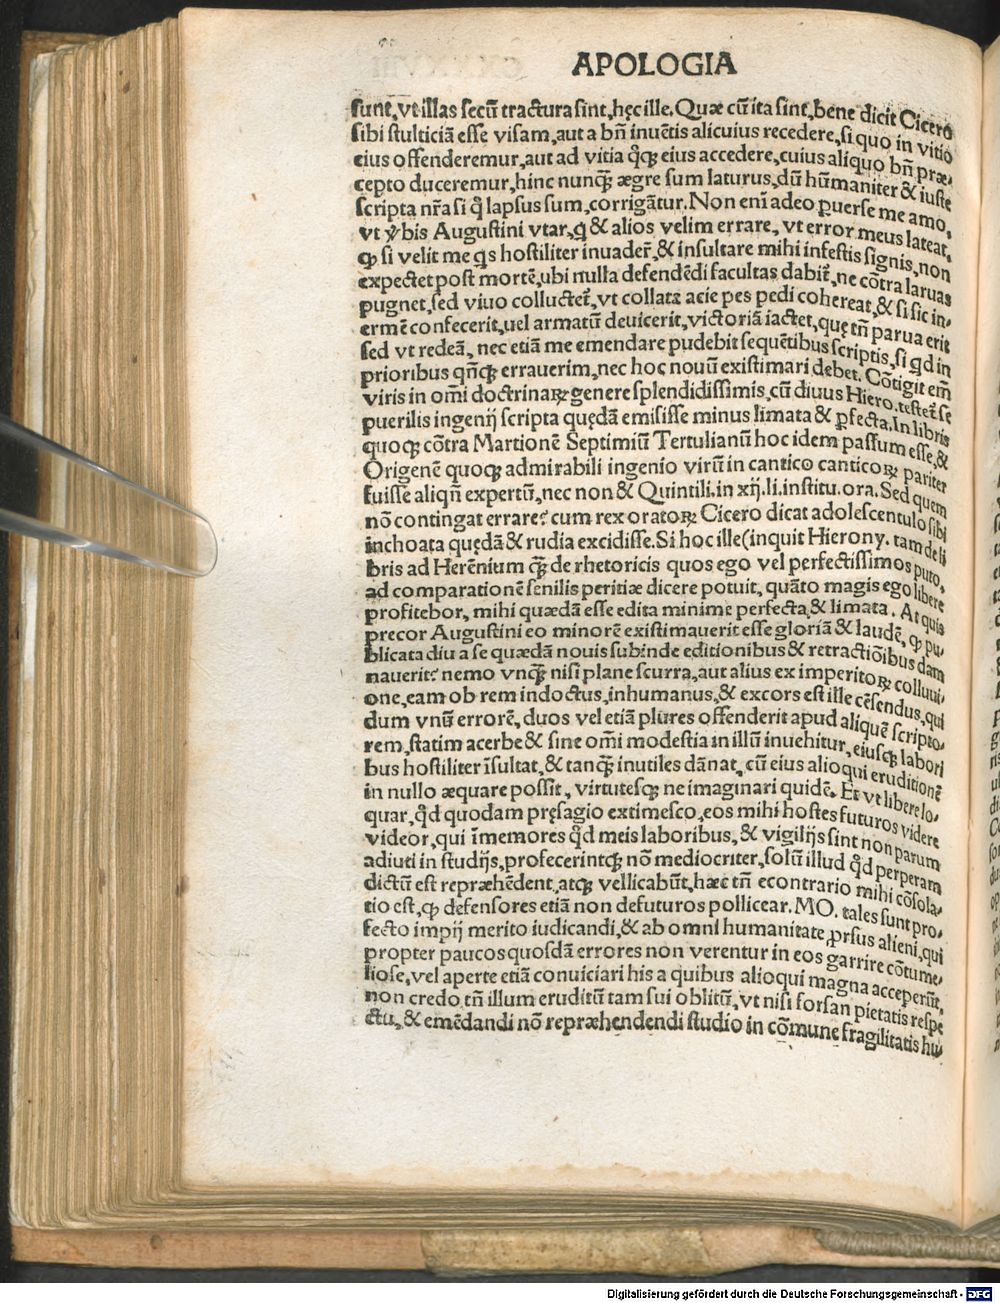 APOLOGIA
sunt, vt illas secū tractura sint, hęc ille. Quæ cū ita sint, bene dicit Cicero
sibi stulticiā esse visam, aut a bn̄ inuētis alicuius recedere, si quo in vitio
eius offenderemur, aut ad vitia q̊q̨ eius accedere, cuius aliquo bn̄ præ-
cepto duceremur, hinc nunq̄ ægre sum laturus, dū hūmaniter & iuste
scripta nr̄a si q̊ lapsus sum, corrigātur. Non eni adeo ꝑuerse me amo,
vt v̊bis Augustini vtar, q̨ & alios velim errare, vt error meus lateat,
ꝙ si velit me q̨s hostiliter inuader̄, & insultare mihi infestis signis, non
expectet post mortē, ubi nulla defendēdi facultas dabit̄, ne cōtra laruas
pugnet, sed viuo colluctet̄, vt collata acie pes pedi cohereat, & si sic in-
ermē confecerit, uel armatū deuicerit, victoriā iactet, quę tn̄ parua erit
sed vt redeā, nec etiā me emendare pudebit sequētibus scriptis, si q̊d in
prioribus qn̄q̨ errauerim, nec hoc nouū existimari debet. Cōtigit em̄
viris in omi doctrinaꝝ genere splendidissimis, cū diuus Hiero. testet̄ se
puerilis ingenij scripta quędā emisisse minus limata & ꝑfecta. In libris
quoq̨ cōtra Martionē Septimiū Tertulianū hoc idem passum esse, &
Origenē quoq̨ admirabili ingenio virū in cantico canticoꝝ pariter
fuisse aliqn̄ expertū, nec non & Quintili. in xij. li. institu. ora. Sed quem
nō contingat errare? cum rex oratoꝝ Cicero dicat adolescentulo sibi
inchoata quędā & rudia excidisse. Si hoc ille (inquit Hierony. tam de li
bris ad Herēnium q̄ de rhetoricis quos ego vel perfectissimos puto,
ad comparationē senilis peritiæ dicere potuit, quāto magis ego libere
profitebor, mihi quædā esse edita minime perfecta, & limata. At quis
precor Augustini eo minorē existimauerit esse gloriā & laudē, ꝙ pu-
blicata diu a se quædā nouis subinde editionibus & retractiōibus dam
nauerit? nemo vnq̄ nisi plane scurra, aut alius ex imperitoꝝ colluui-
one, eam ob rem indoctus, inhumanus, & excors est ille cēsendus, qui
dum vnū errorē, duos vel etiā plures offenderit apud aliquē scripto-
rem, statim acerbe & sine omi modestia in illū inuehitur, eiusq̨ labori
bus hostiliter īsultat, & tanq̄ inutiles dānat, cū eius alioqui eruditionē
in nullo æquare possit, virtutesq̨ ne imaginari quidē. Et vt libere lo-
quar, q̊d quodam pręsagio extimesco, eos mihi hostes futuros videre
videor, qui īmemores q̊d meis laboribus, & vigilijs sint non parum
adiuti in studijs, profecerintq̨ nō mediocriter, solū illud q̊d perperam
dictū est repræhēdent, atq̨ vellicabūt, hæc tn̄ econtrario mihi cōsola-
tio est, ꝙ defensores etiā non defuturos pollicear. MO. tales sunt pro-
fecto impij merito iudicandi, & ab omni humanitate ꝓrsus alieni, qui
propter paucos quosdā errores non verentur in eos garrire cōtume-
liose, vel aperte etiā conuiciari his a quibus alioqui magna acceperūt,
non credo tn̄ illum eruditū tam sui oblitū, vt nisi forsan pietatis respe
ctu, & emēdandi nō repræhendendi studio in cōmune fragilitatis hu-
Digitalisierung gefördert durch die Deutsche Forschungsgemeinschaft - DFG